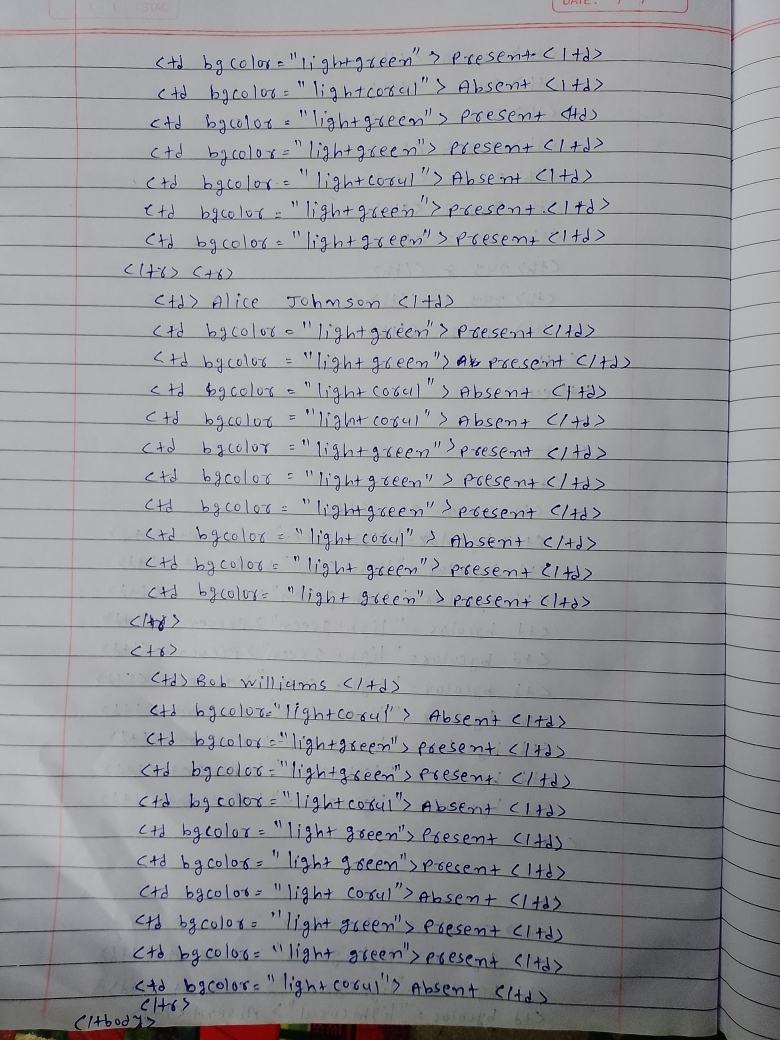 DATE: / /
<td bgcolor="lightgreen"> Present </td>
<td bgcolor="lightcoral"> Absent </td>
<td bgcolor="lightgreen"> Present </td>
<td bgcolor="lightgreen"> Present </td>
<td bgcolor="lightcoral"> Absent </td>
<td bgcolor="lightgreen"> Present </td>
<td bgcolor="lightgreen"> Present </td>
</tr> <tr>
<td> Alice Johnson </td>
<td bgcolor="lightgreen"> Present </td>
<td bgcolor="light green"> Present </td>
<td bgcolor="light coral"> Absent </td>
<td bgcolor="light coral"> Absent </td>
<td bgcolor="lightgreen"> Present </td>
<td bgcolor="light green"> Present </td>
<td bgcolor="lightgreen"> Present </td>
<td bgcolor="light coral"> Absent </td>
<td bgcolor="light green"> Present </td>
<td bgcolor="light green"> Present </td>
</tr>
<tr>
<td> Bob williams </td>
<td bgcolor="lightcoral"> Absent </td>
<td bgcolor="lightgreen"> Present </td>
<td bgcolor="lightgreen"> Present </td>
<td bgcolor="lightcoral"> Absent </td>
<td bgcolor="light green"> Present </td>
<td bgcolor="light green"> Present </td>
<td bgcolor="light coral"> Absent </td>
<td bgcolor="light green"> Present </td>
<td bgcolor="light green"> Present </td>
<td bgcolor="light coral"> Absent </td>
</tr>
</tbody>